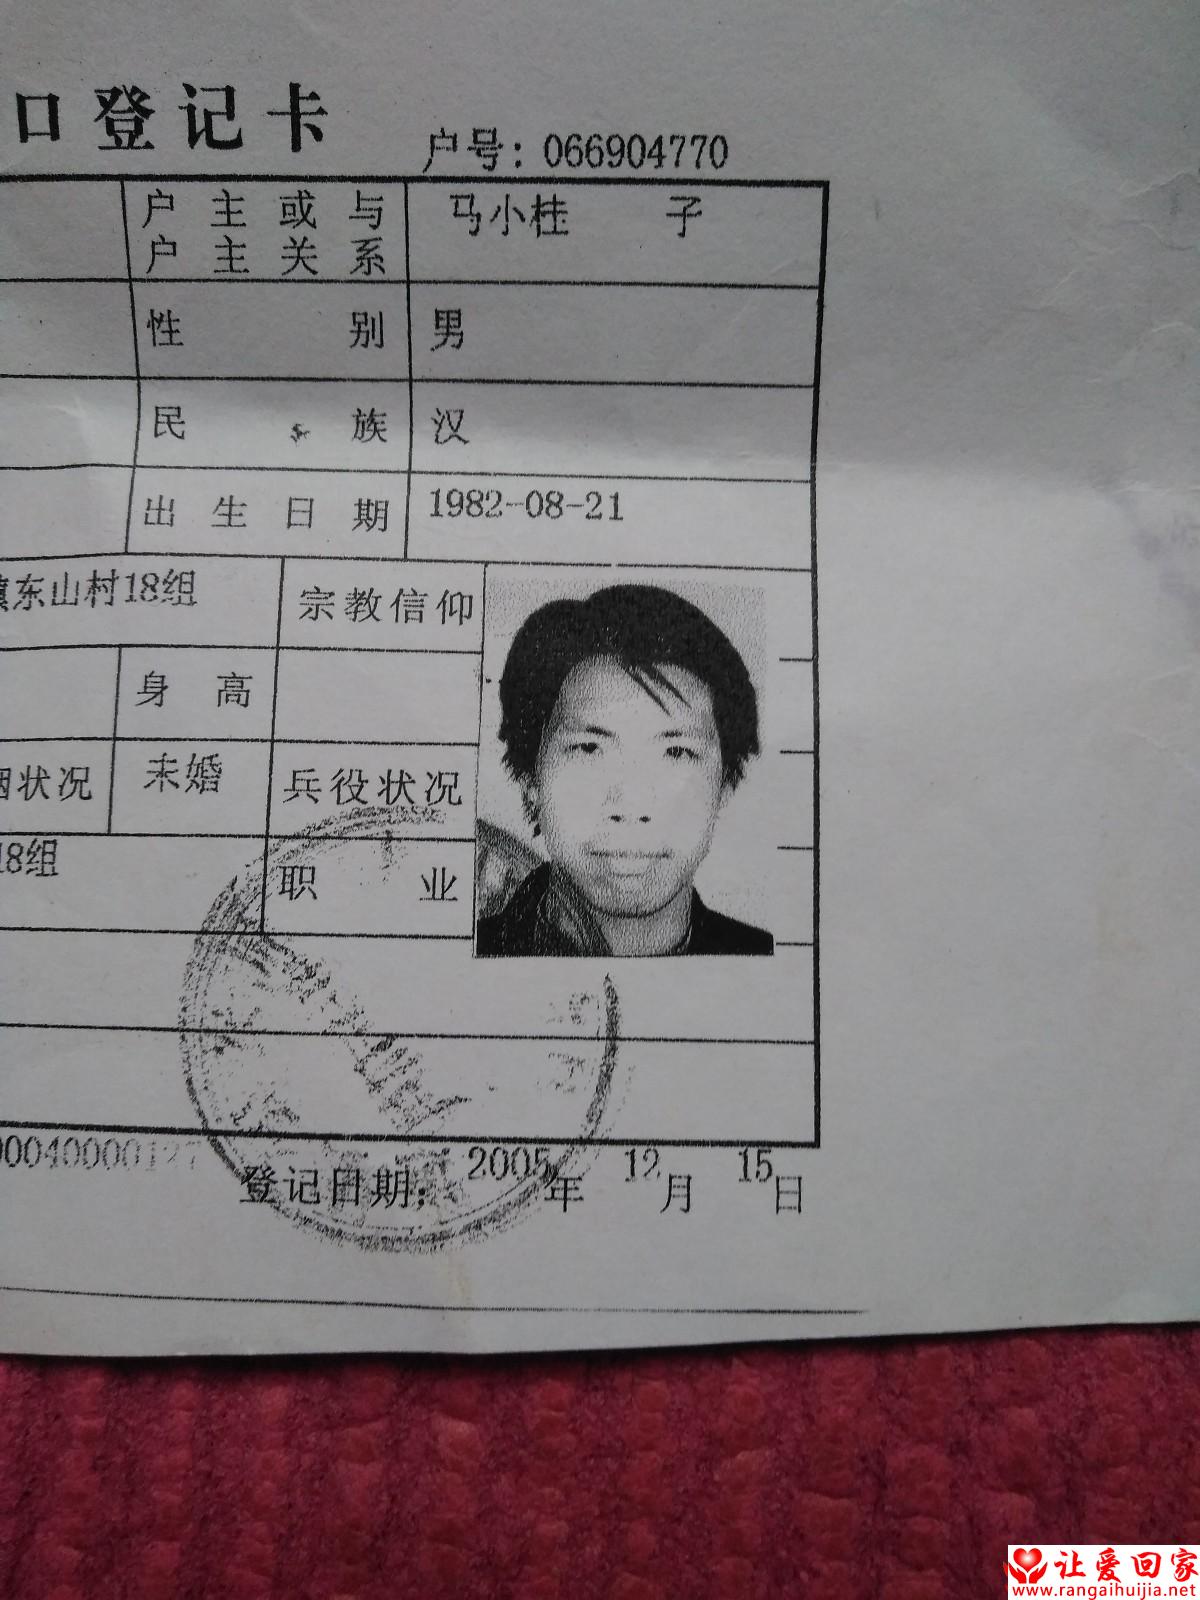 口登记卡
户号：066904770
户主或与
户主关系
马小桂 子
性别 男
民族 汉
出生日期 1982-08-21
镇东山村18组 宗教信仰
身高
姻状况 未婚 兵役状况
18组 职业
00040000127
登记日期：2005年12月15日
让爱回家
www.rangaihuijia.net